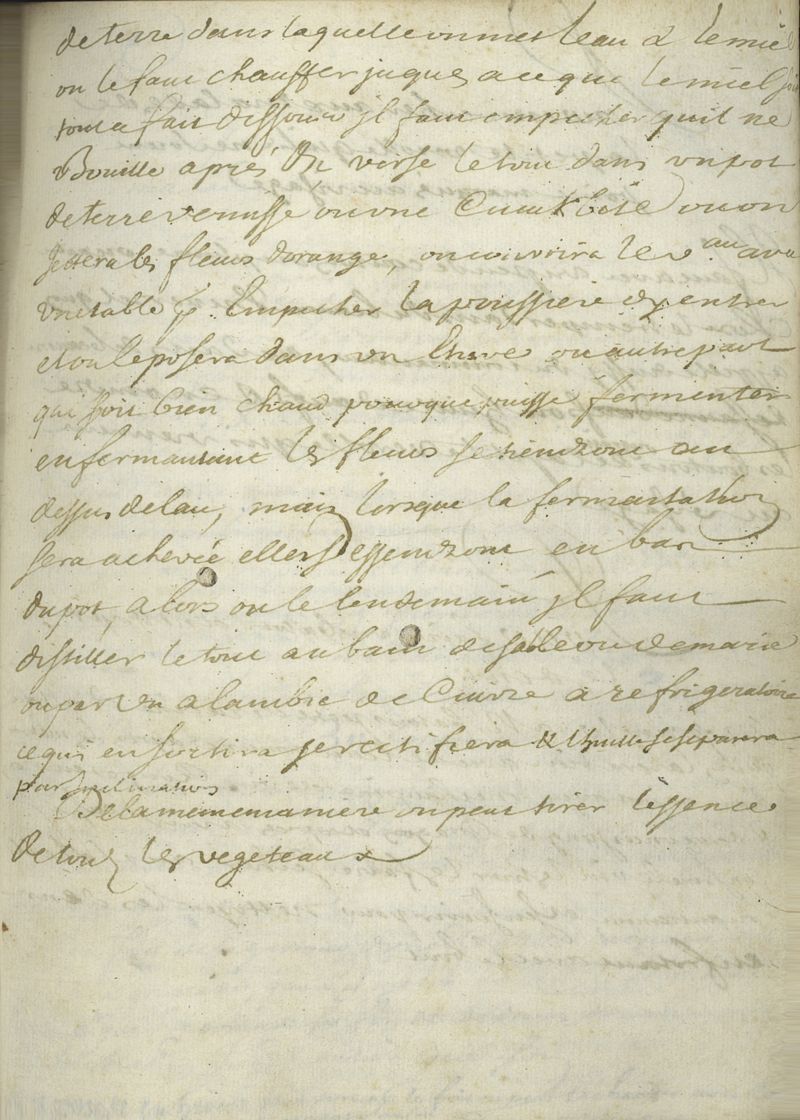 de terre dans laquelle on met leau & le miel
on le faut chauffer juques a ce que le miel soit
tout a fait dissous jl faut empecher quil ne
Bouille aprés On verse le tout dans un pot
de terre vernissé ou une Cucurbite ou on
jettera les fleurs dorange, on couvrira le vau avec
une table p Empecher la poussiere dy entrer
et on le posera dans un Etuve ou autre part
qui soit bien chaud pour que puisse fermenter
en fermantant les fleurs se tiendront au
dessus de lau, mais lorsque la fermantation
sera achevée elles dessendront en bas
du pot, alors ou le lendemain jl faut
distiller le tout au bain de sable ou de marie
ou par un alambic de Cuivre a refrigeratoire
ce qui en sortira se rectifiera & lhuille se separera
par inclination
De la meme maniere on peut tirer lessence
de tous les vegeteaux